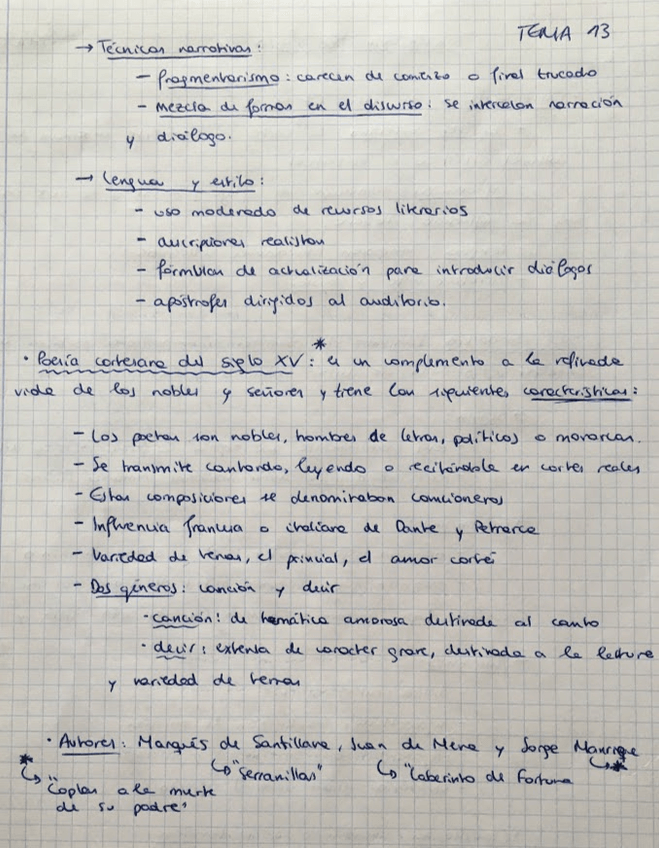 TEMA 13
→ Técnicas narrativas:
- fragmentarismo: carecen de comienzo o final trucado
- Mezcla de formas en el discurso: se intercalan narración
y diálogo.
→ Lengua y estilo:
- uso moderado de recursos literarios
- descripciones realistas
- fórmulas de actualización para introducir diálogos
- apóstrofes dirigidos al auditorio.
• Poesía cortesana del siglo XV*: es un complemento a la refinada
vida de los nobles y señores y tiene las siguientes características:
- Los poetas son nobles, hombres de letras, políticos o monarcas.
- Se transmite cantando, leyendo o recitándola en cortes reales
- Estas composiciones se denominaban cancioneros
- Influencia francesa o italiana de Dante y Petrarca
- Variedad de temas, el principal, el amor cortés
- Dos géneros: canción y decir
· canción: de temática amorosa destinada al canto
· decir: extensa de caracter grave, destinada a la lectura
y variedad de temas
· Autores: Marqués de Santillana, Juan de Mena y Jorge Manrique
* ↳ "Coplas a la muerte ↳ "Serranillas" ↳ "Laberinto de Fortuna ↳ *
de su padre"